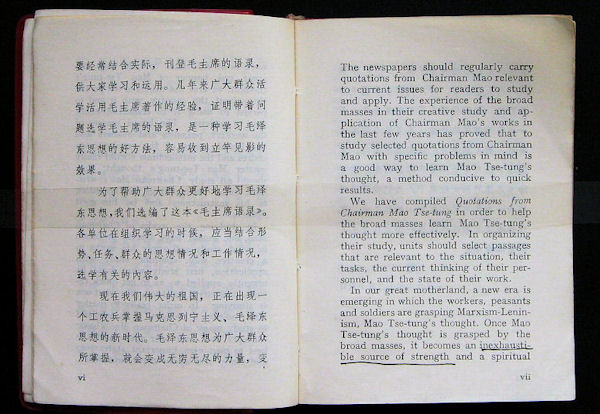 要经常结合实际，刊登毛主席的语录，
供大家学习和运用。几年来广大群众活
学活用毛主席著作的经验，证明带着问
题选学毛主席的语录，是一种学习毛泽
东思想的好方法，容易收到立竿见影的
效果。
为了帮助广大群众更好地学习毛泽
东思想，我们选编了这本《毛主席语录》。
各单位在组织学习的时候，应当结合形
势、任务、群众的思想情况和工作情况，
选学有关的内容。
现在我们伟大的祖国，正在出现一
个工农兵掌握马克思列宁主义、毛泽东
思想的新时代。毛泽东思想为广大群众
所掌握，就会变成无穷无尽的力量，变
vi
The newspapers should regularly carry
quotations from Chairman Mao relevant
to current issues for readers to study
and apply. The experience of the broad
masses in their creative study and ap-
plication of Chairman Mao's works in
the last few years has proved that to
study selected quotations from Chairman
Mao with specific problems in mind is
a good way to learn Mao Tse-tung's
thought, a method conducive to quick
results.
We have compiled Quotations from
Chairman Mao Tse-tung in order to help
the broad masses learn Mao Tse-tung's
thought more effectively. In organizing
their study, units should select passages
that are relevant to the situation, their
tasks, the current thinking of their per-
sonnel, and the state of their work.
In our great motherland, a new era is
emerging in which the workers, peasants
and soldiers are grasping Marxism-Lenin-
ism, Mao Tse-tung's thought. Once Mao
Tse-tung's thought is grasped by the
broad masses, it becomes an inexhausti-
ble source of strength and a spiritual
vii